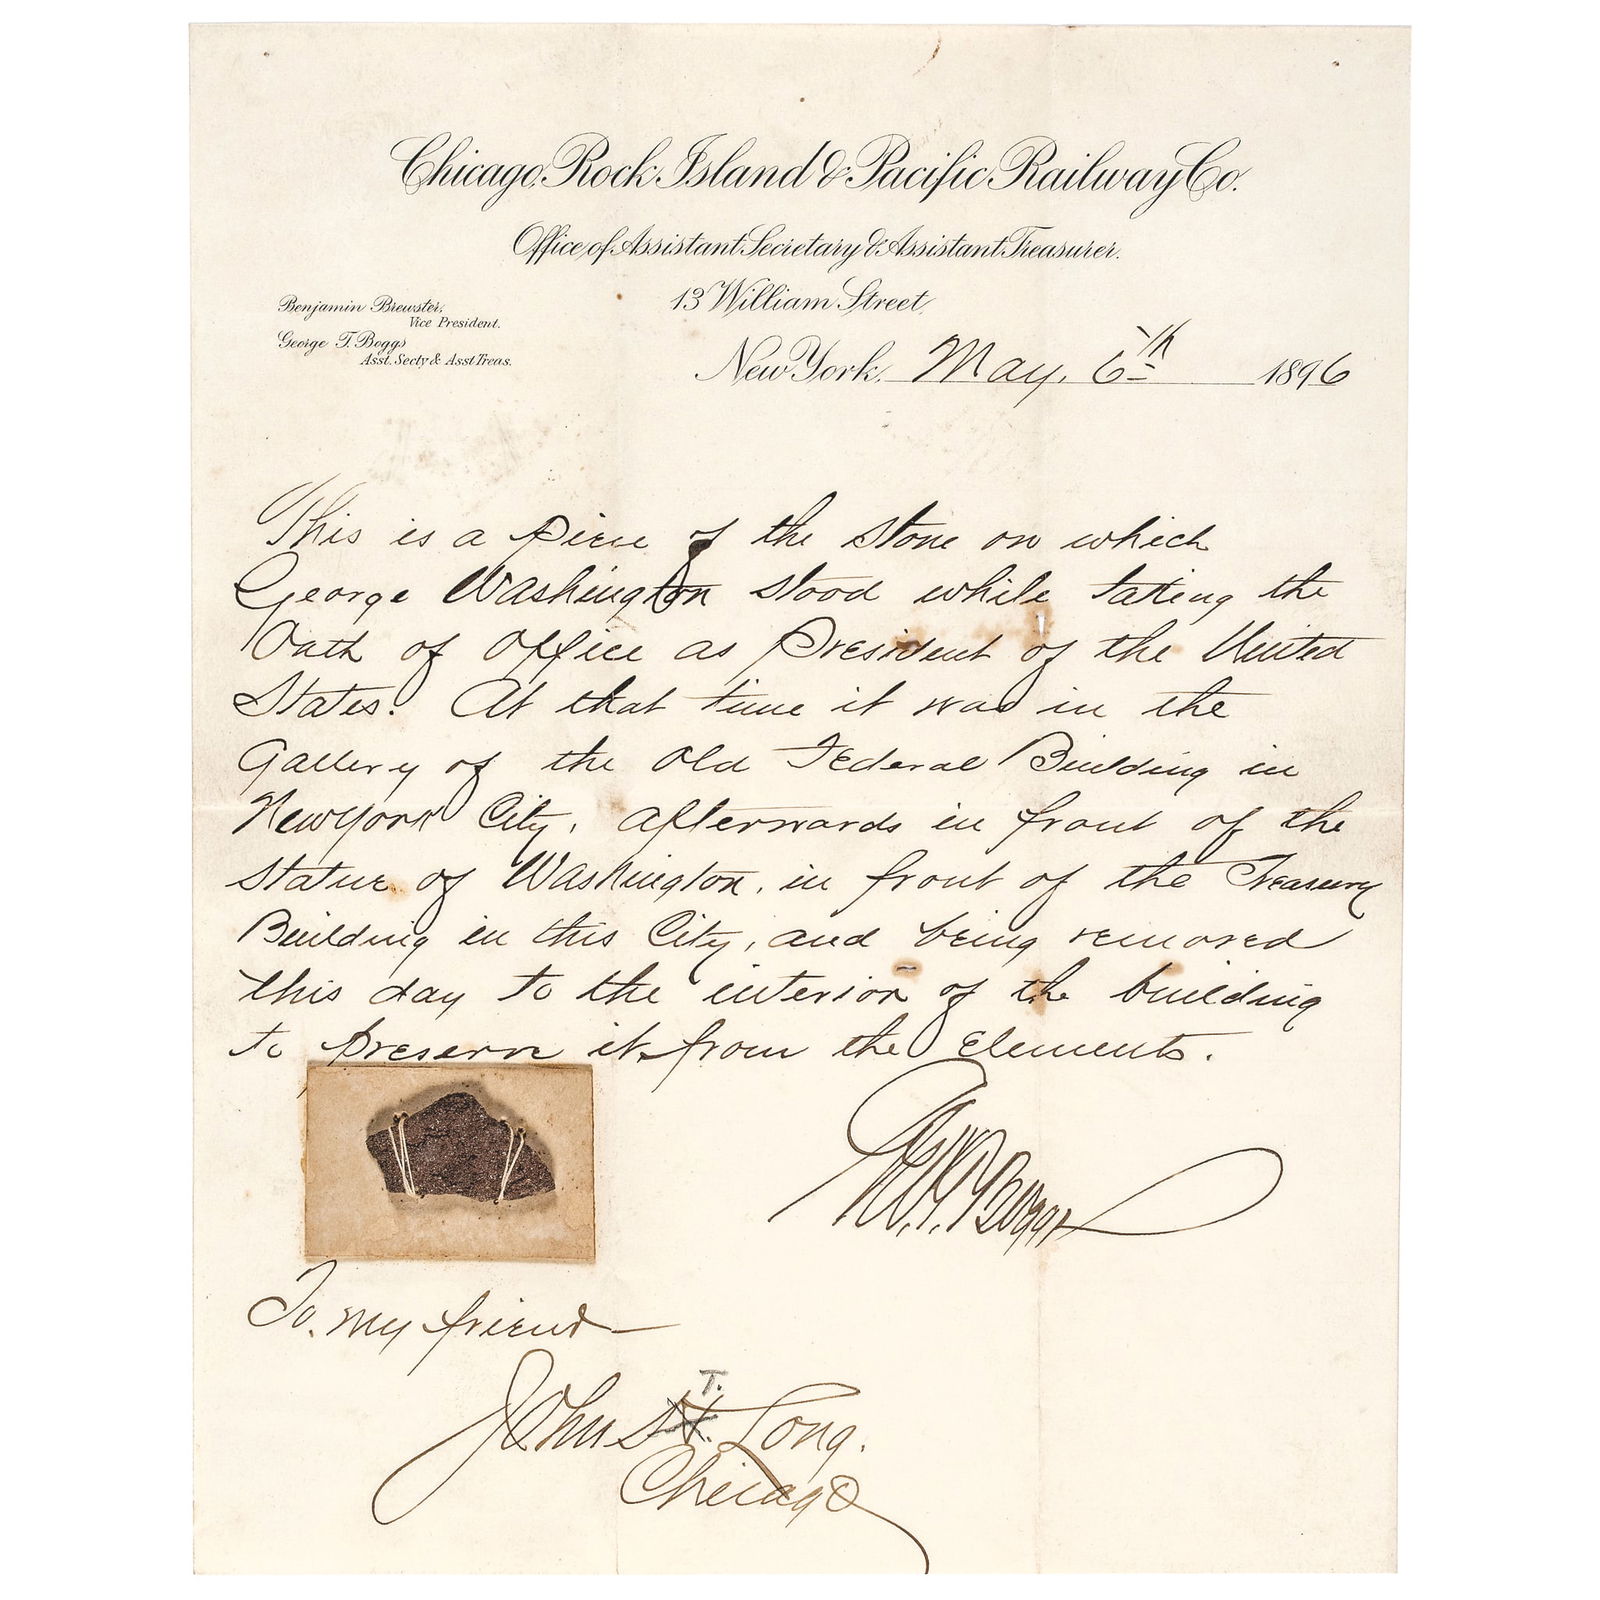 Chicago, Rock Island & Pacific Railway Co.
Office of Assistant Secretary & Assistant Treasurer.
13 William Street,
Benjamin Brewster,
Vice President.
George T. Boggs
Asst. Secty & Asst Treas.
New York, May, 6th 1896
This is a piece of the stone on which
George Washington stood while taking the
Oath of Office as President of the United
States. At that time it was in the
Gallery of the Old Federal Building in
New York City, afterwards in front of the
Statue of Washington, in front of the Treasury
Building in this City, and being removed
this day to the interior of the building
to preserve it from the Elements.
Boggs
To my friend
T.
John Long.
Chicago